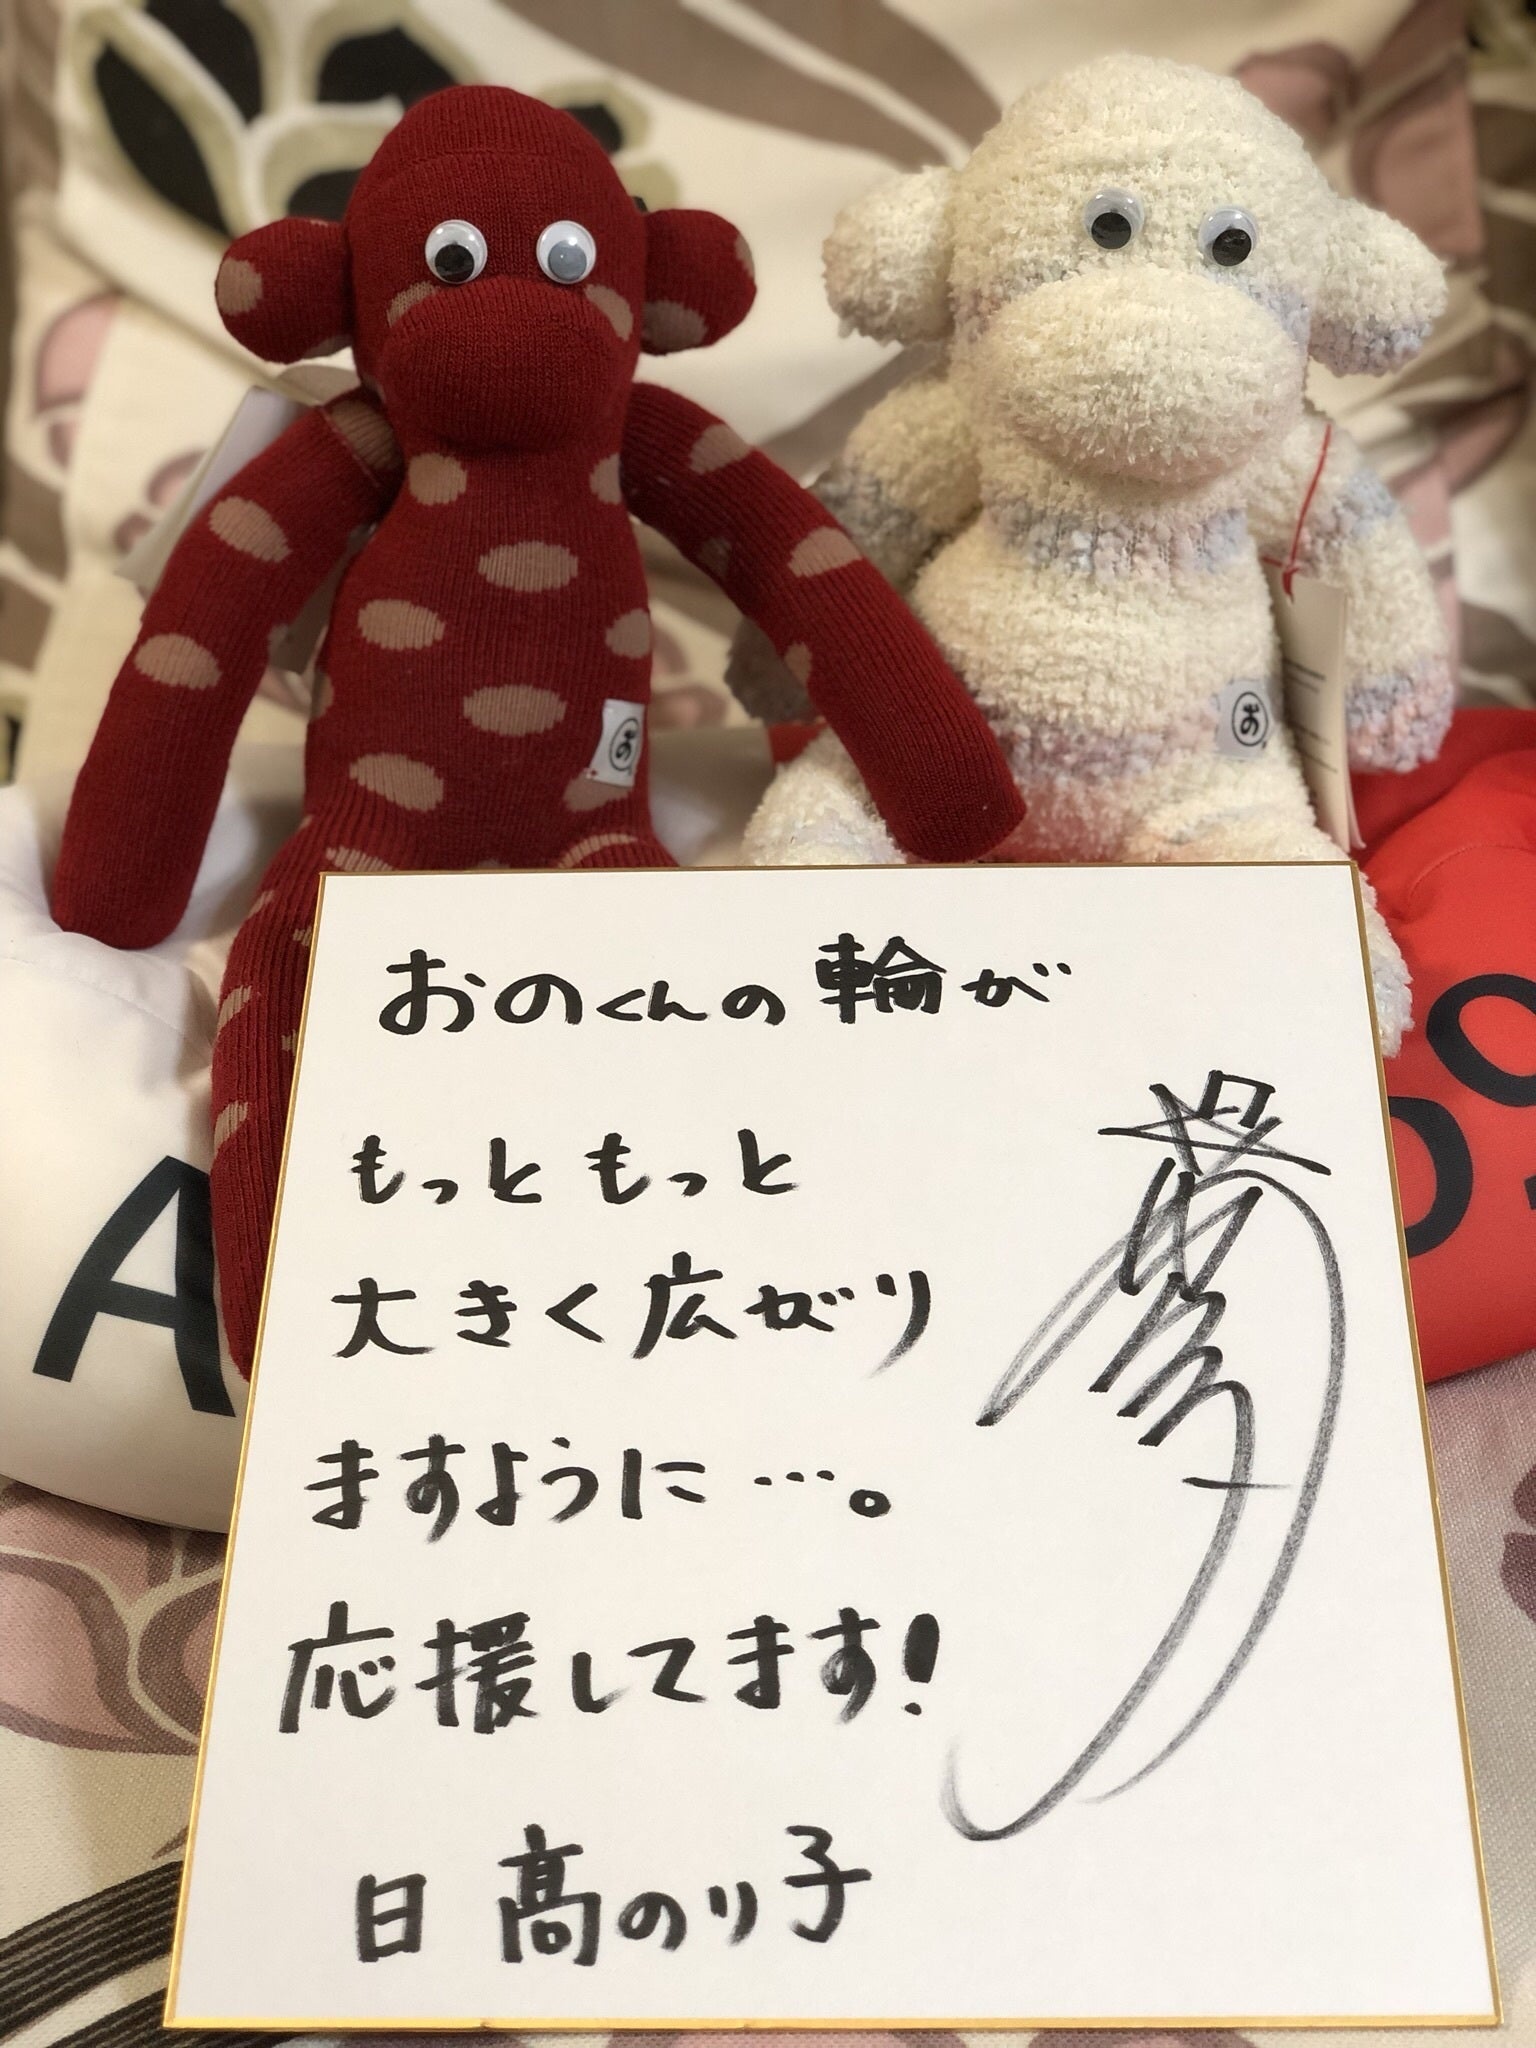 お
お
おのくんの輪が
もっともっと
大きく広がり
ますように…。
応援してます!
日髙のり子
A